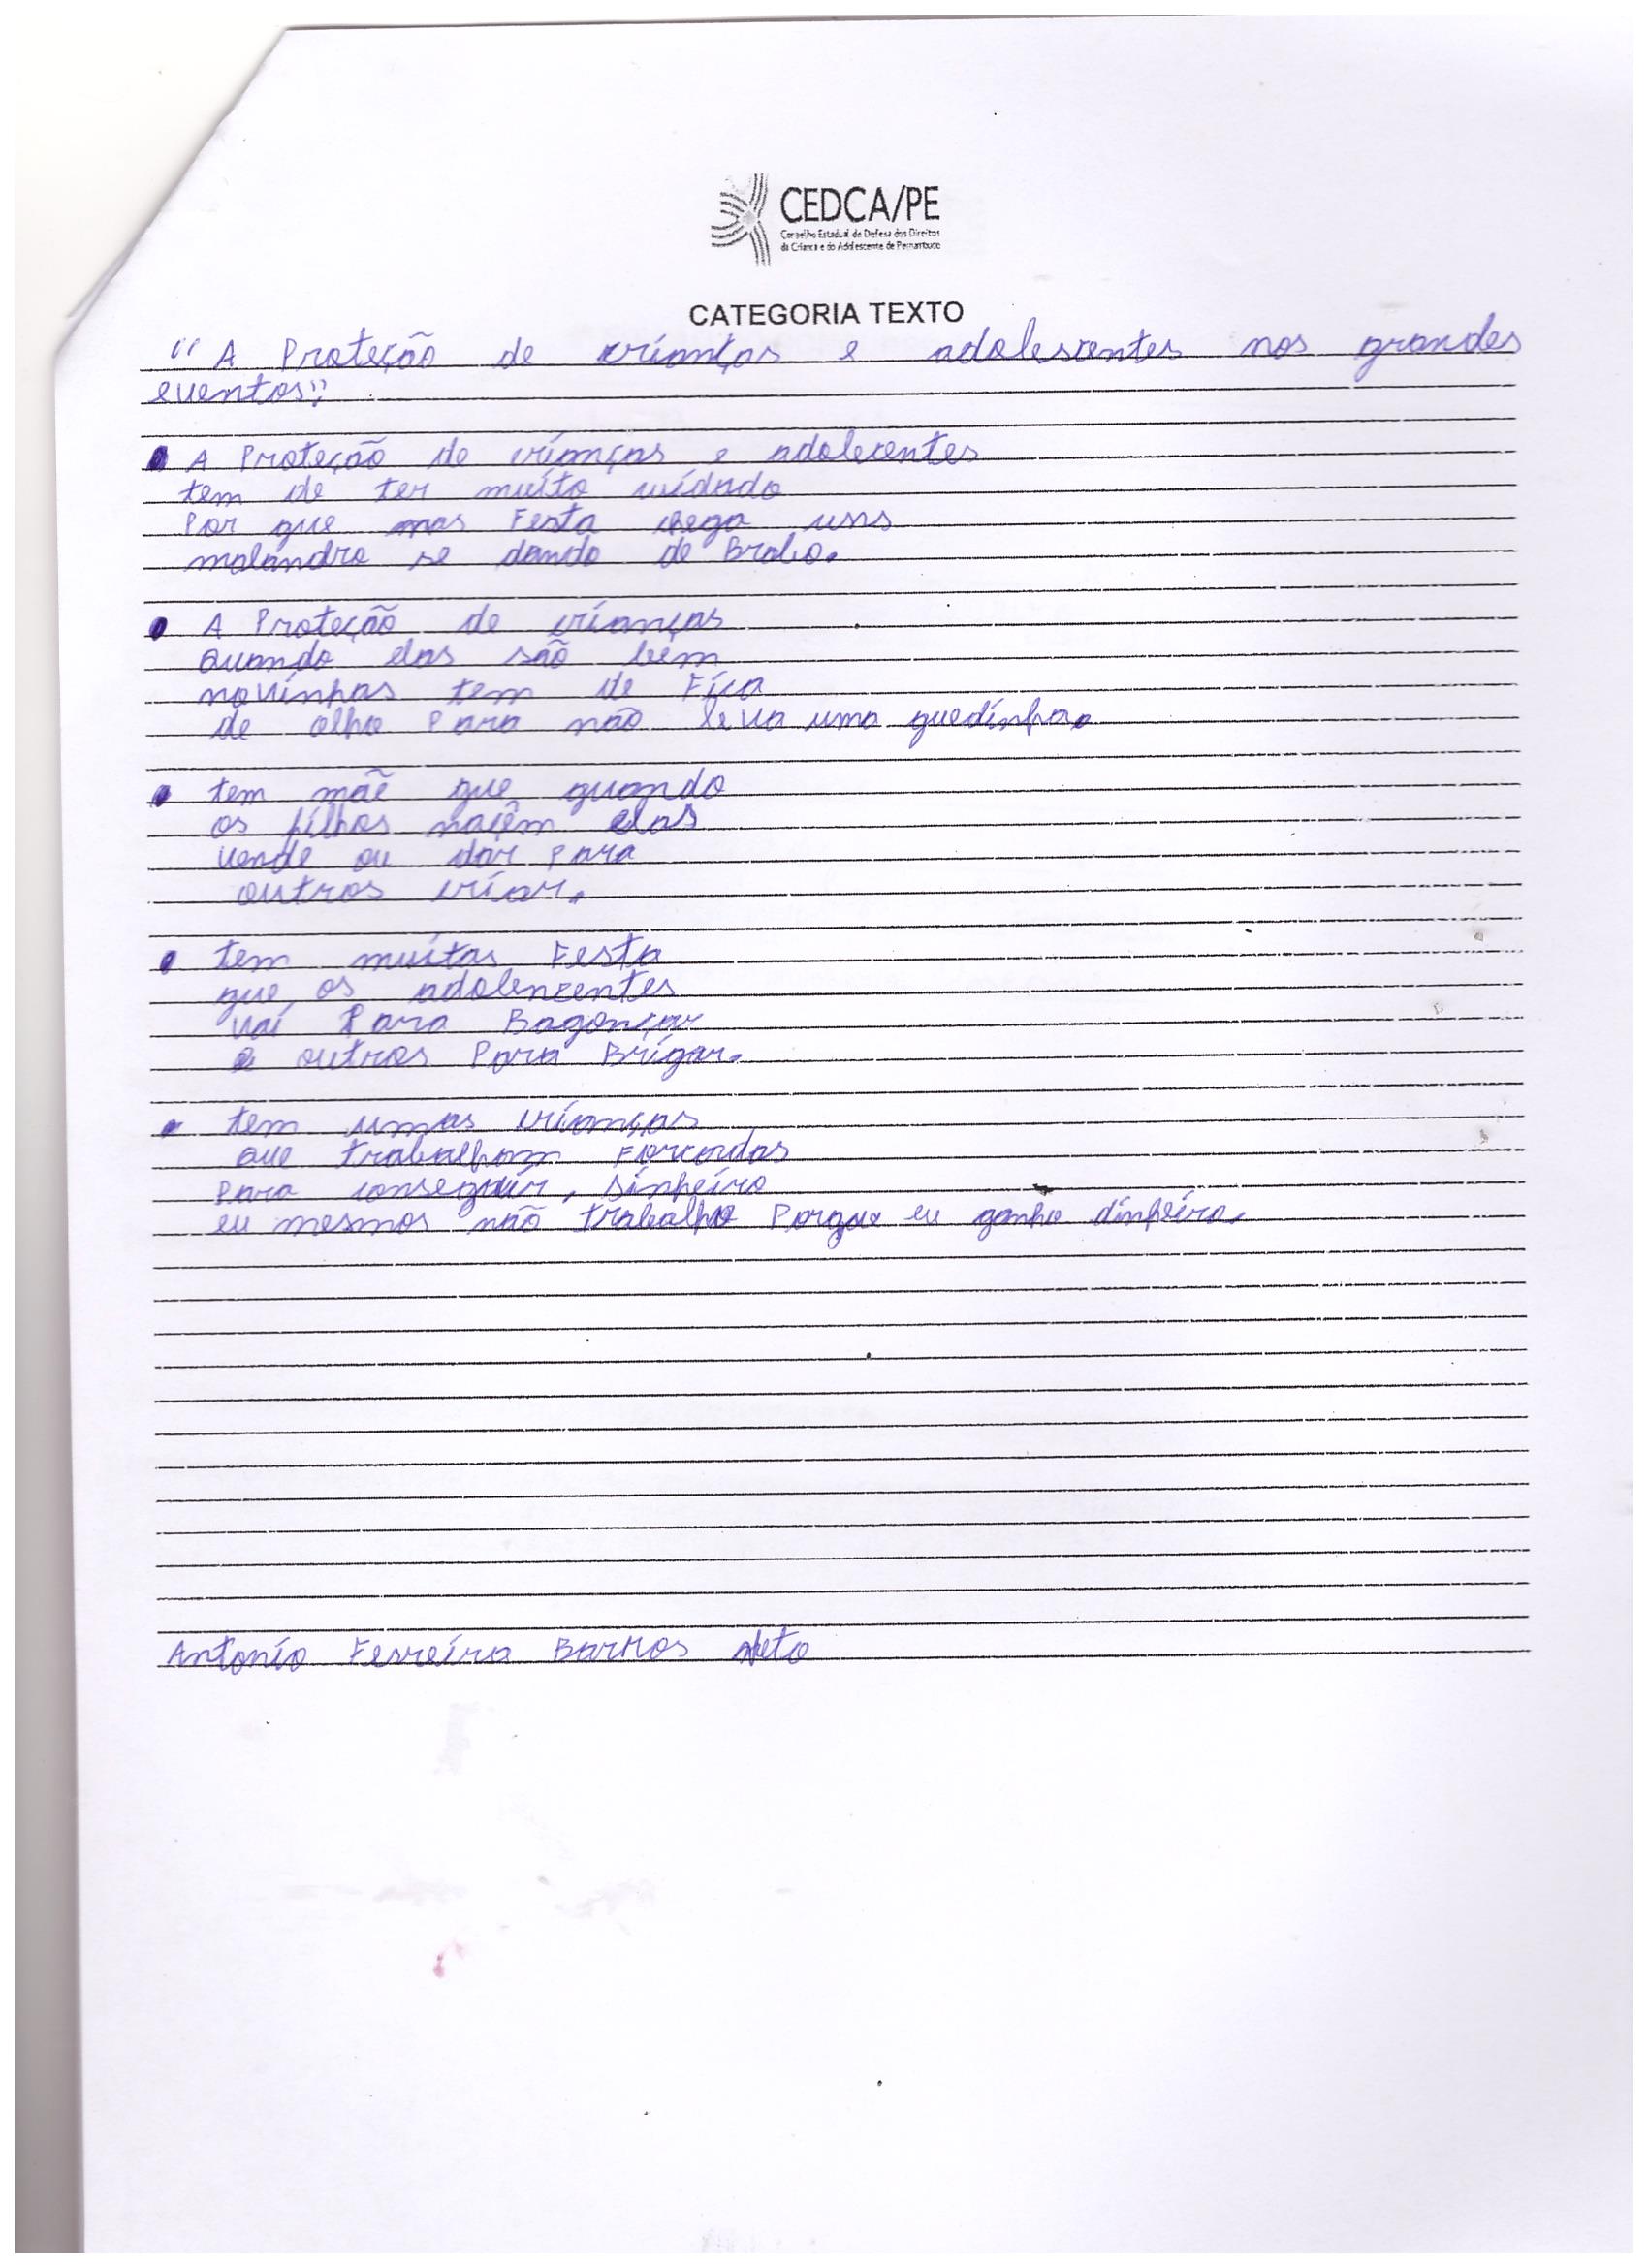 CEDCA/PE
Conselho Estadual de Defesa dos Direitos
da Criança e do Adolescente de Pernambuco
CATEGORIA TEXTO
"A Proteção de crianças e adolescentes nos grandes
eventos";
A Proteção de crianças e adolecentes
tem de ter muito cuidado
Por que nas Festa chega uns
malandro se dando de Brabo.
A Proteção de crianças
Quando elas são bem
novinhas tem de Fica
de olho Para não leva uma quedinha.
tem mãe que quando
os filhos naçêm elas
vende ou dar Para
outros criar.
tem muitas Festa
que os adolencentes
vai Para Bagonçar
e outros Para Brigar.
tem umas crianças
que trabalham Forcadas
Para conseguir, dinheiro
eu mesmos não trabalho Porque eu ganho dinheiro.
Antonio Ferreira Barros Neto